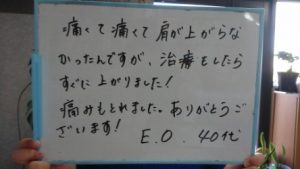 痛くて痛くて肩が上がらな
かったんですが、治療をしたら
すぐに上がりました!
痛みもとれました。ありがとうご
ざいます!
E.O. 40代